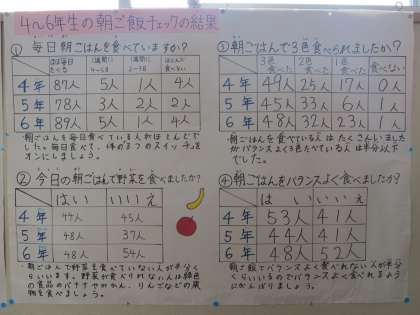 4〜6年生の朝ご飯チェックの結果
① 毎日朝ごはんを食べていますか?
ほぼ毎日食べる 1週間に4〜5日 1週間に2〜3日 ほとんど食べない
4年 87人 5人 1人 4人
5年 78人 3人 2人 2人
6年 89人 5人 1人 4人
朝ごはんを毎日食べている人がほとんどでした。毎日食べて、体の3つのスイッチをオンにしましょう。
② 今日の朝ごはんで野菜を食べましたか?
はい いいえ
4年 44人 45人
5年 48人 37人
6年 48人 54人
朝ごはんで野菜を食べていない人が半分くらいいます。野菜が食べられない人は緑色の食品のバナナやみかん、りんごなどの果物を食べましょう。
③ 朝ごはんで3色食べられましたか?
3色食べた 2色食べた 1色食べた 食べない
4年 49人 25人 17人 0人
5年 45人 33人 6人 1人
6年 48人 32人 23人 1人
朝ごはんを食べている人はたくさんいましたがバランスよく3色たべている人は半分以下でした。
④ 朝ごはんをバランスよく食べましたか?
はい いいえ
4年 53人 41人
5年 44人 41人
6年 48人 52人
朝ご飯でバランスよく食べれない人が半分くらいいるのでバランスよく食べれるようにがんばりましょう。